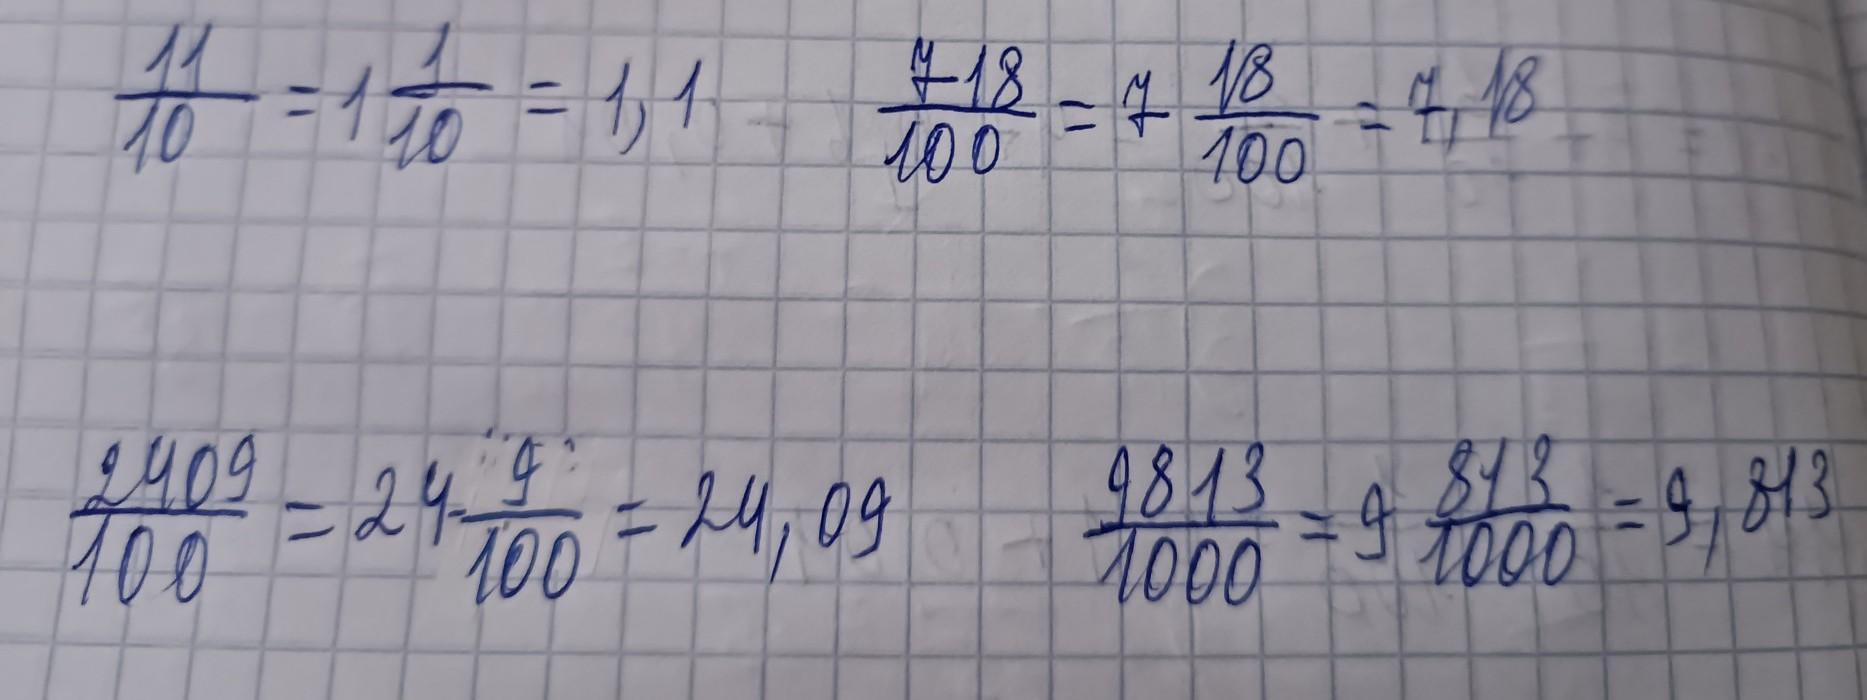 11/10 = 1 1/10 = 1,1    718/100 = 7 18/100 = 7,18
2409/100 = 24 9/100 = 24,09    9813/1000 = 9 813/1000 = 9,813